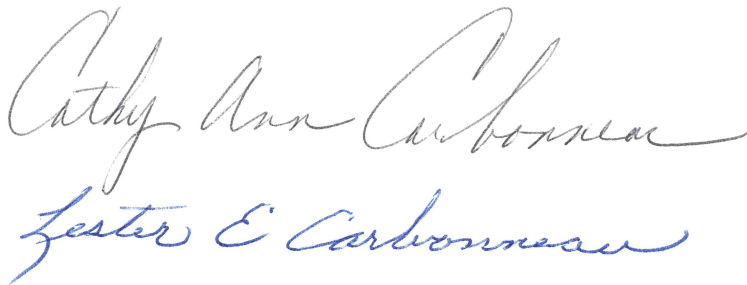 Cathy Ann Carbonneau
Lester E Carbonneau